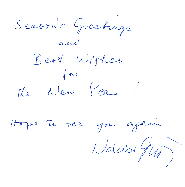 Season's Greetings
and
Best Wishes
for
the New Year
Hope to see you again